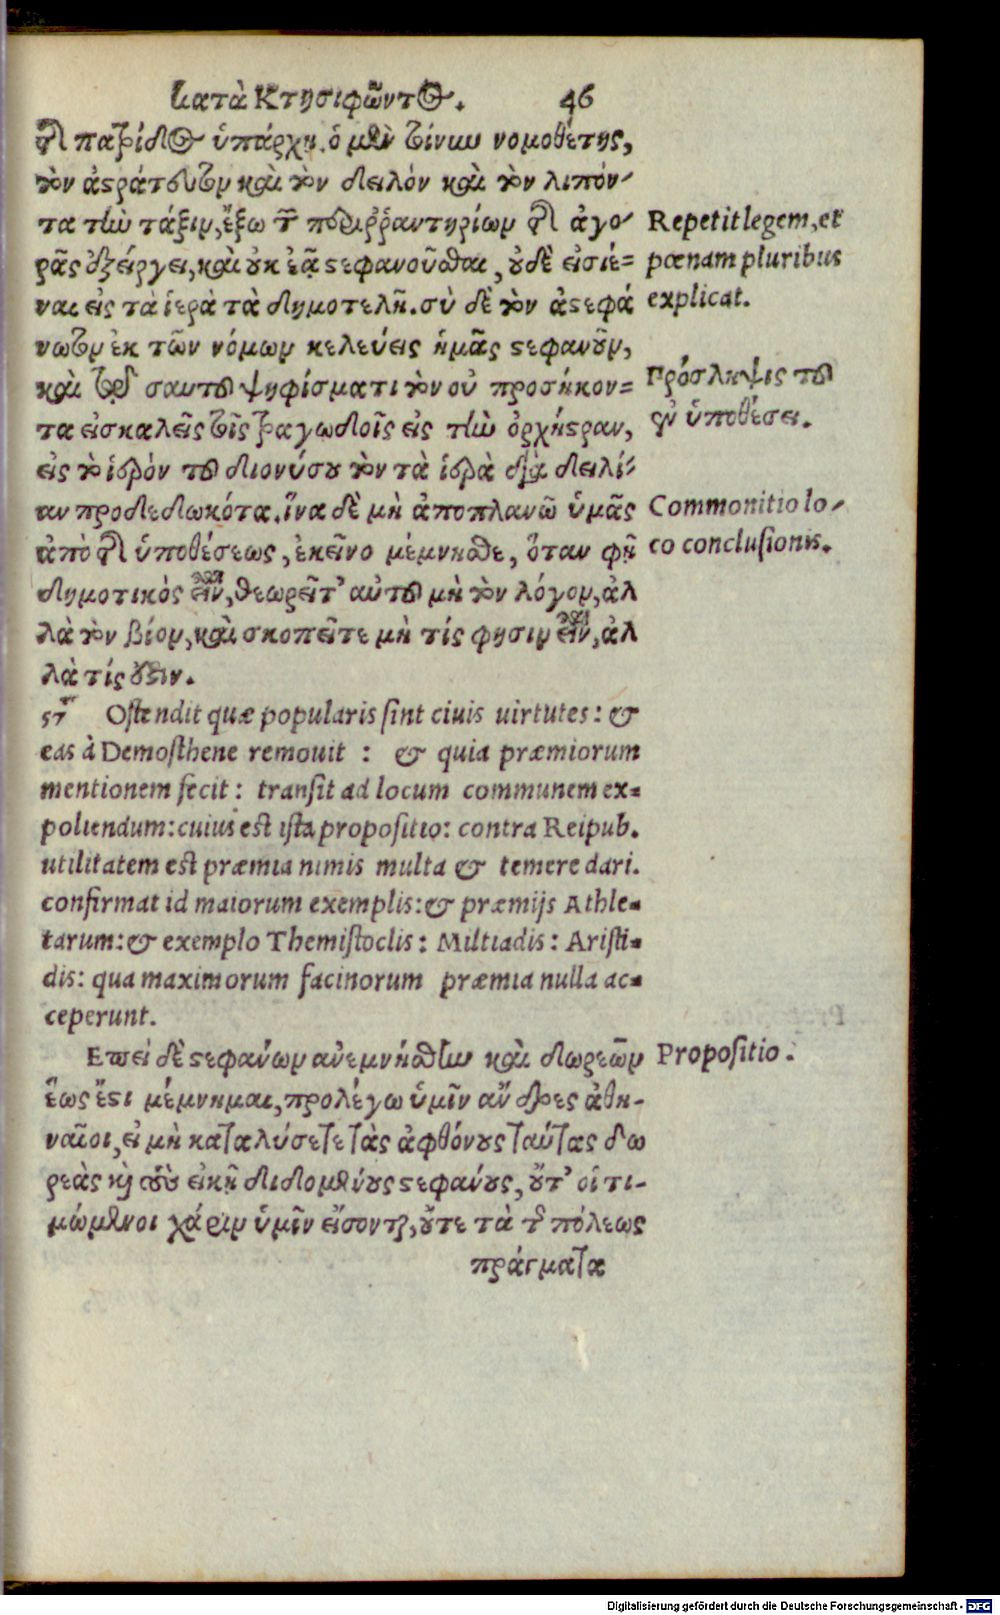 κατὰ Κτησιφῶντος. 46
τῆς πατρίδος ὑπάρχῃ. ὁ μὲν τοίνυν νομοθέτης,
τὸν ἀστράτευτον καὶ τὸν δειλόν καὶ τὸν λιπόν-
τα τὴν τάξιν, ἔξω τῶν περιῤῥαντηρίων τῆς ἀγο-
ρᾶς ἐξείργει, καὶ οὐκ ἐᾷ στεφανοῦσθαι, οὐδὲ εἰσιέ=
ναι εἰς τὰ ἱερὰ τὰ δημοτελῆ. σὺ δὲ τὸν ἀστεφά
νωτον ἐκ τῶν νόμων κελεύεις ἡμᾶς στεφανοῦν,
καὶ τῷ σαυτοῦ ψηφίσματι τὸν οὐ προσήκον=
τα εἰσκαλεῖς τοῖς τραγωδοῖς εἰς τὴν ὀρχήστραν,
εἰς τὸ ἱερὸν τοῦ διονύσου τὸν τὰ ἱερὰ διὰ δειλί-
αν προδεδωκότα. ἵνα δὲ μὴ ἀποπλανῶ ὑμᾶς
ἀπὸ τῆς ὑποθέσεως, ἐκεῖνο μέμνησθε, ὅταν φῇ
δημοτικὸς εἶναι, θεωρεῖτ' αὐτοῦ μὴ τὸν λόγον, ἀλ
λὰ τὸν βίον, καὶ σκοπεῖτε μὴ τίς φησιν εἶναι, ἀλ
λὰ τίς ἐστιν.
Repetit legem, et
pœnam pluribus
explicat.
Πρόσληψις τοῦ
ἐν ὑποθέσει.
Commonitio lo-
co conclusionis.
57 Ostendit quæ popularis sint ciuis uirtutes: &
eas à Demosthene remouit : & quia præmiorum
mentionem fecit: transit ad locum communem ex=
poliendum: cuius est ista propositio: contra Reipub.
utilitatem est præmia nimis multa & temere dari.
confirmat id maiorum exemplis: & præmijs Athle=
tarum: & exemplo Themistoclis: Miltiadis: Aristi=
dis: qua maximorum facinorum præmia nulla ac=
ceperunt.
Επεὶ δὲ στεφάνων ἀνεμνήσθην καὶ δωρεῶν
ἕως ἔτι μέμνημαι, προλέγω ὑμῖν ἄνδρες ἀθη-
ναῖοι, εἰ μὴ καταλύσετε τὰς ἀφθόνους ταύτας δω
ρεὰς καὶ τοὺς εἰκῆ διδομένους στεφάνους, οὔτ' οἱ τι-
μώμενοι χάριν ὑμῖν εἴσονται, οὔτε τὰ τῆς πόλεως
πράγματα
Propositio.
Digitalisierung gefördert durch die Deutsche Forschungsgemeinschaft - DFG